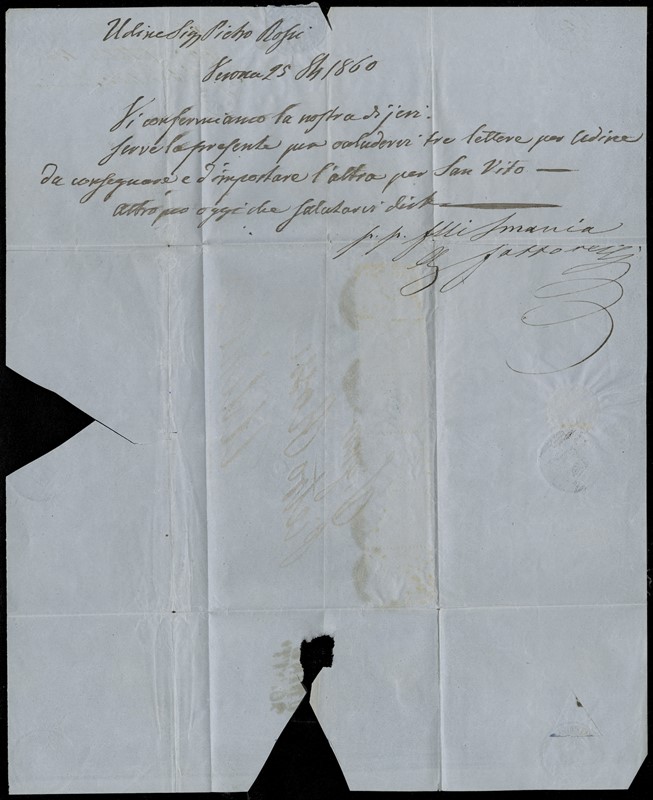 Udine Sigr Pietro Rossi
Verona 25 1860
Vi confermiamo la nostra di jeri.
Serve la presente per caludervi tre lettere per Udine
da consegnare e d'impostare l'altra per San Vito —
Altro per oggi che salutarvi dist.
p. p. flli Smania